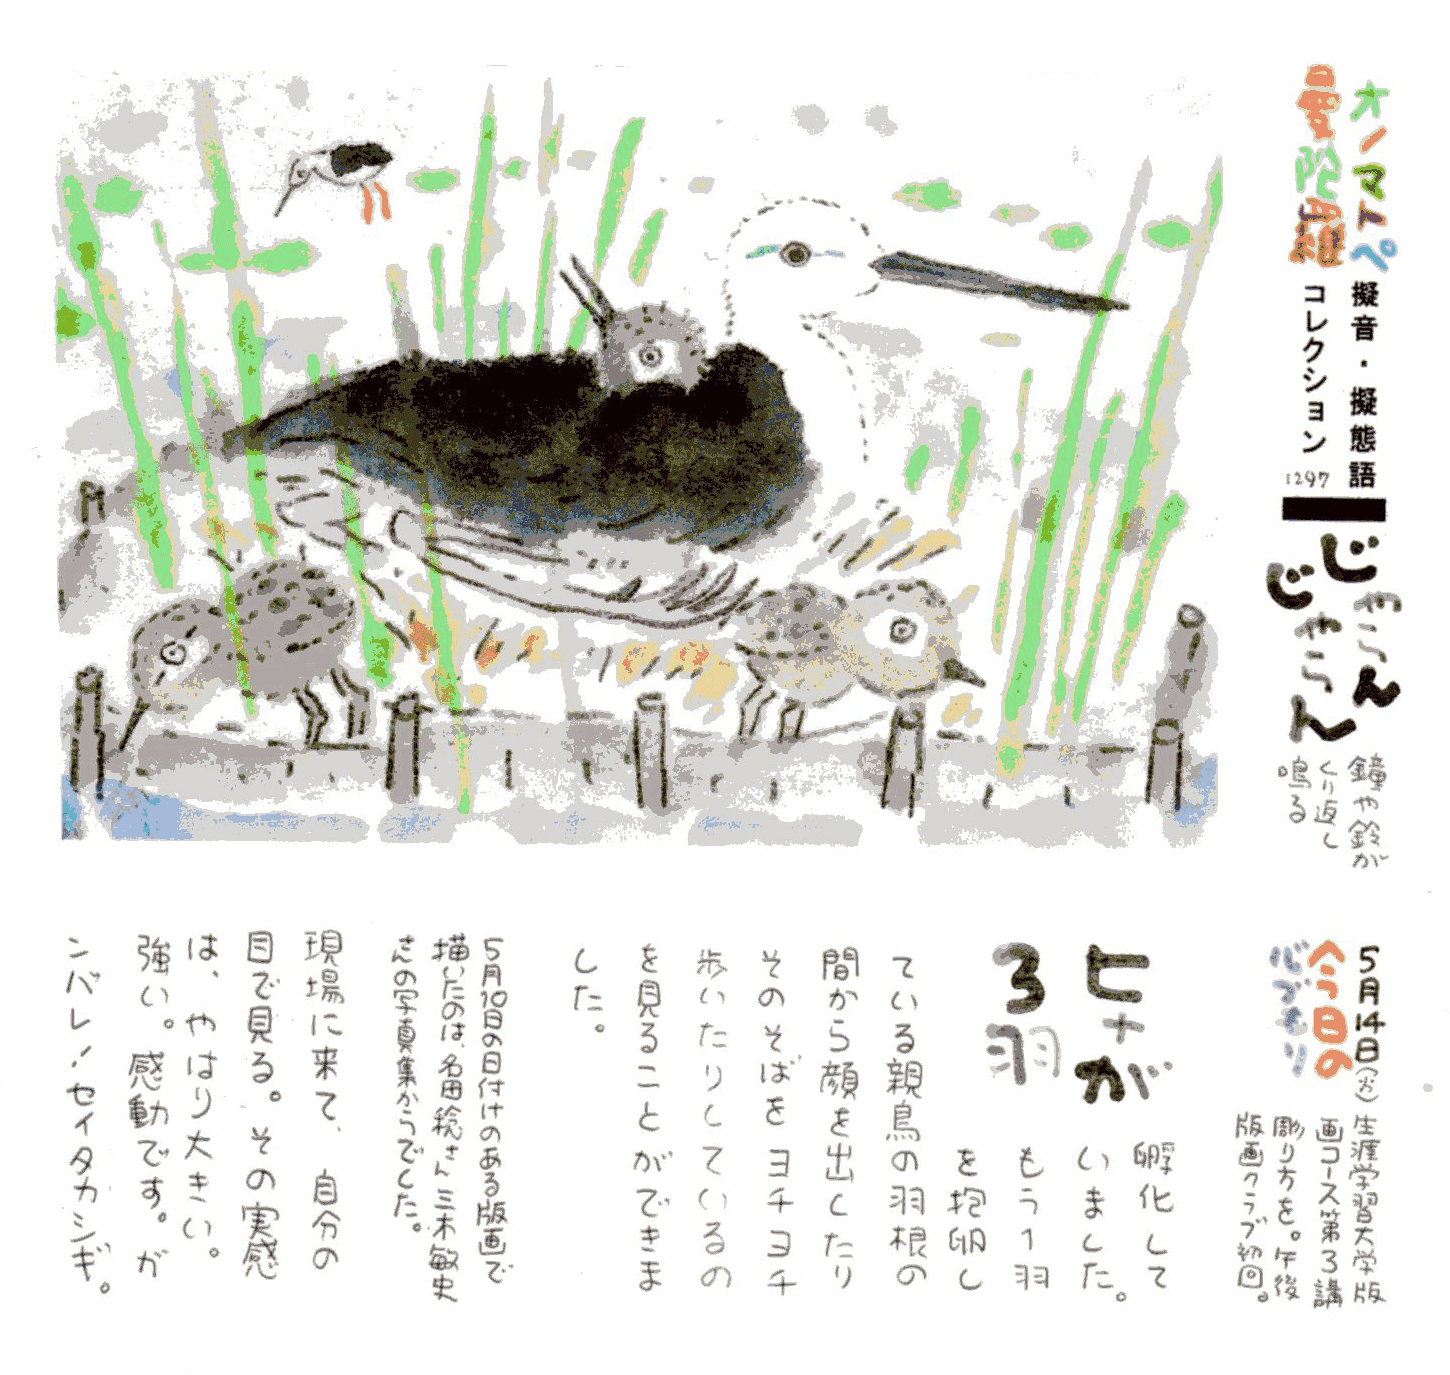 オノマトペ
曼陀羅
擬音・擬態語
コレクション
1297
じゃらん
じゃらん
鐘や鈴が
くり返し
鳴る
5月14日(火)
今日の
心づもり
生涯学習大学版
画コース第3講
彫り方を。午後
版画クラブ初回。
ヒナが
3羽
孵化して
いました。
もう1羽
を抱卵し
ている親鳥の羽根の
間から顔を出したり
そのそばをヨチヨチ
歩いたりしているの
を見ることができま
した。
5月10日の日付けのある版画で
描いたのは、名田稔さん三木敏史
さんの写真集からでした。
現場に来て、自分の
目で見る。その実感
は、やはり大きい。
強い。感動です。ガ
ンバレ!セイタカシギ。